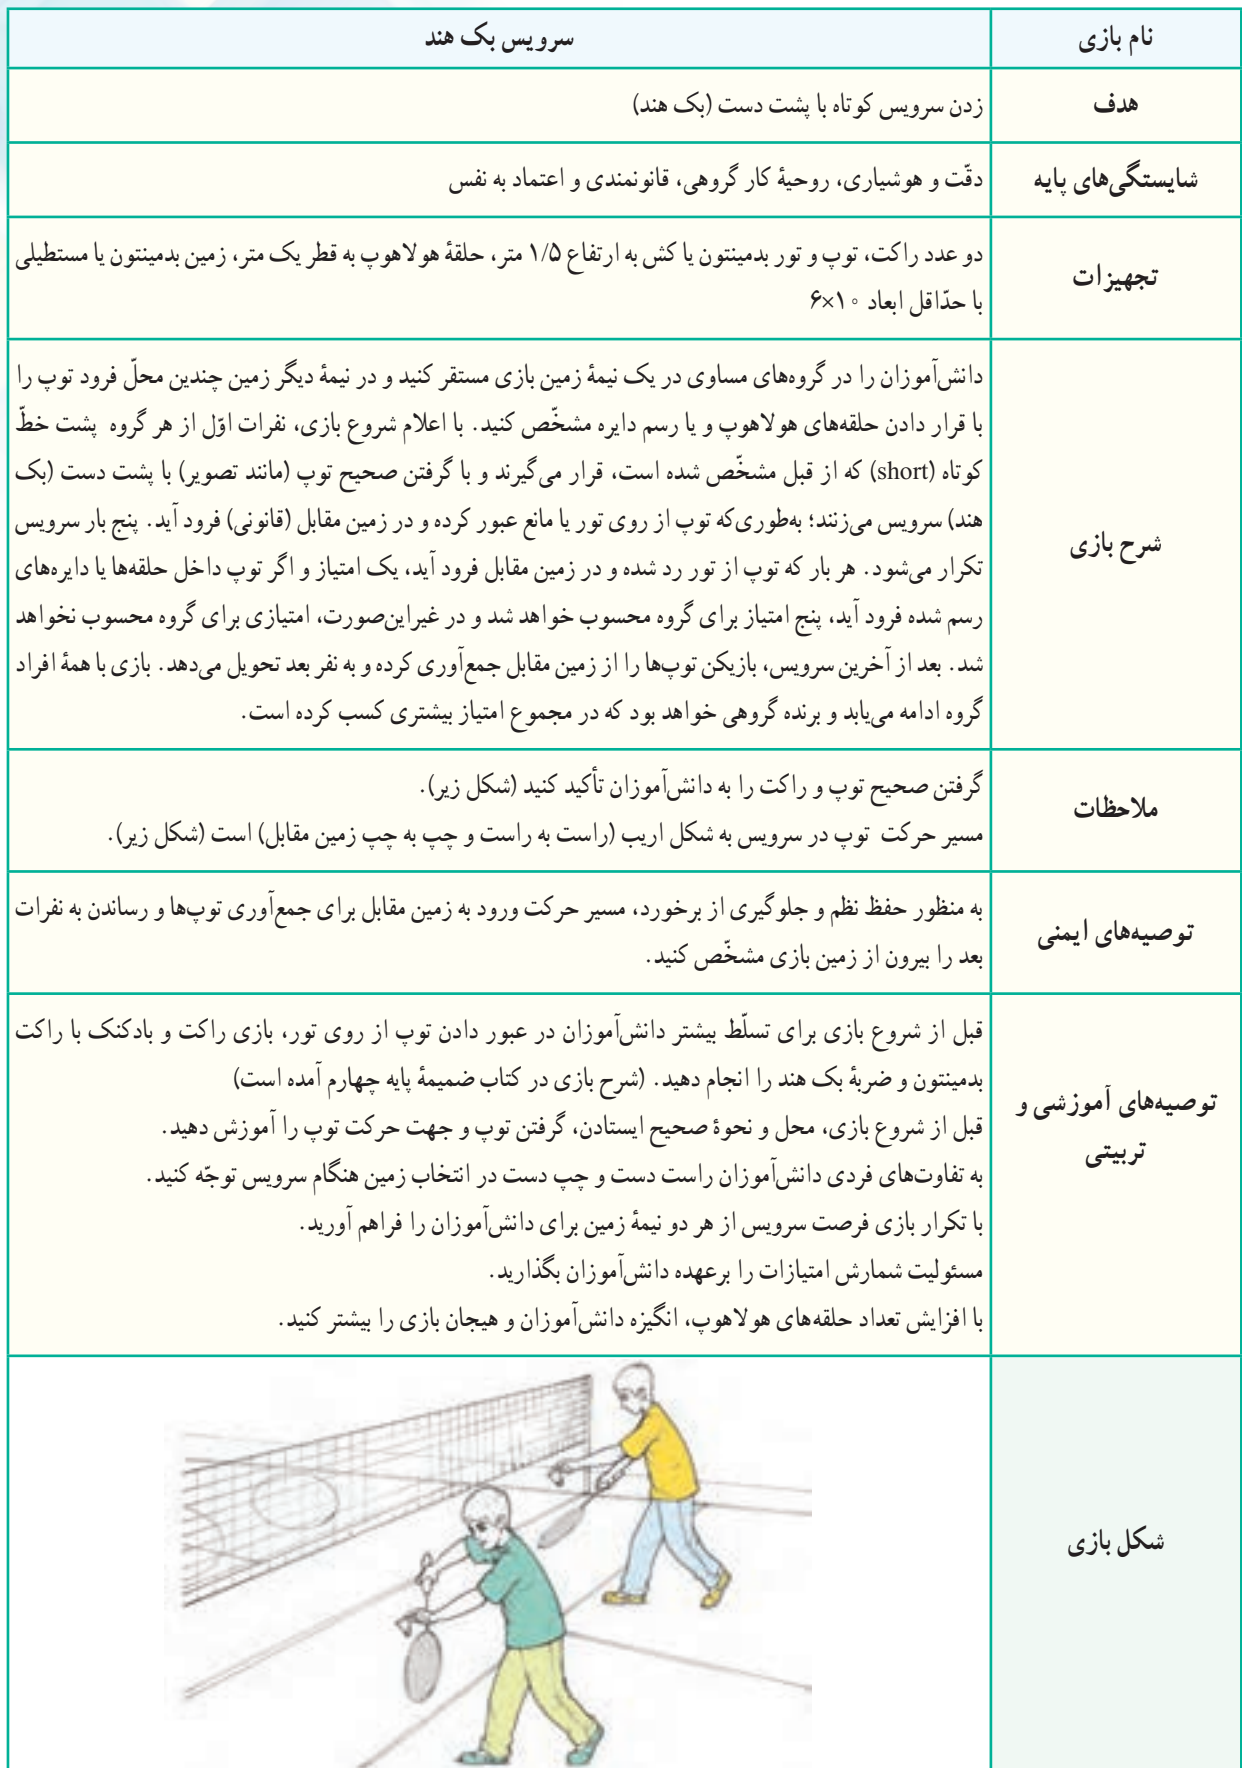 نام بازی
سرویس بک هند
هدف
زدن سرویس کوتاه با پشت دست (بک هند)
شایستگی‌های پایه
دقّت و هوشیاری، روحیهٔ کار گروهی، قانونمندی و اعتماد به نفس
تجهیزات
دو عدد راکت، توپ و تور بدمینتون یا کش به ارتفاع ۱/۵ متر، حلقهٔ هولاهوپ به قطر یک متر، زمین بدمینتون یا مستطیلی
با حدّاقل ابعاد ۱۰×۶
شرح بازی
دانش‌آموزان را در گروه‌های مساوی در یک نیمهٔ زمین بازی مستقر کنید و در نیمهٔ دیگر زمین چندین محلّ فرود توپ را
با قرار دادن حلقه‌های هولاهوپ و یا رسم دایره مشخّص کنید. با اعلام شروع بازی، نفرات اوّل از هر گروه پشت خطّ
کوتاه (short) که از قبل مشخّص شده است، قرار می‌گیرند و با گرفتن صحیح توپ (مانند تصویر) با پشت دست (بک
هند) سرویس می‌زنند؛ به‌طوری‌که توپ از روی تور یا مانع عبور کرده و در زمین مقابل (قانونی) فرود آید. پنج بار سرویس
تکرار می‌شود. هر بار که توپ از تور رد شده و در زمین مقابل فرود آید، یک امتیاز و اگر توپ داخل حلقه‌ها یا دایره‌های
رسم شده فرود آید، پنج امتیاز برای گروه محسوب خواهد شد و در غیراین‌صورت، امتیازی برای گروه محسوب نخواهد
شد. بعد از آخرین سرویس، بازیکن توپ‌ها را از زمین مقابل جمع‌آوری کرده و به نفر بعد تحویل می‌دهد. بازی با همهٔ افراد
گروه ادامه می‌یابد و برنده گروهی خواهد بود که در مجموع امتیاز بیشتری کسب کرده است.
ملاحظات
گرفتن صحیح توپ و راکت را به دانش‌آموزان تأکید کنید (شکل زیر).
مسیر حرکت توپ در سرویس به شکل اریب (راست به راست و چپ به چپ زمین مقابل) است (شکل زیر).
توصیه‌های ایمنی
به منظور حفظ نظم و جلوگیری از برخورد، مسیر حرکت ورود به زمین مقابل برای جمع‌آوری توپ‌ها و رساندن به نفرات
بعد را بیرون از زمین بازی مشخّص کنید.
توصیه‌های آموزشی و
تربیتی
قبل از شروع بازی برای تسلّط بیشتر دانش‌آموزان در عبور دادن توپ از روی تور، بازی راکت و بادکنک با راکت
بدمینتون و ضربهٔ بک هند را انجام دهید. (شرح بازی در کتاب ضمیمهٔ پایه چهارم آمده است)
قبل از شروع بازی، محل و نحوهٔ صحیح ایستادن، گرفتن توپ و جهت حرکت توپ را آموزش دهید.
به تفاوت‌های فردی دانش‌آموزان راست دست و چپ دست در انتخاب زمین هنگام سرویس توجّه کنید.
با تکرار بازی فرصت سرویس از هر دو نیمهٔ زمین برای دانش‌آموزان را فراهم آورید.
مسئولیت شمارش امتیازات را برعهده دانش‌آموزان بگذارید.
با افزایش تعداد حلقه‌های هولاهوپ، انگیزه دانش‌آموزان و هیجان بازی را بیشتر کنید.
شکل بازی